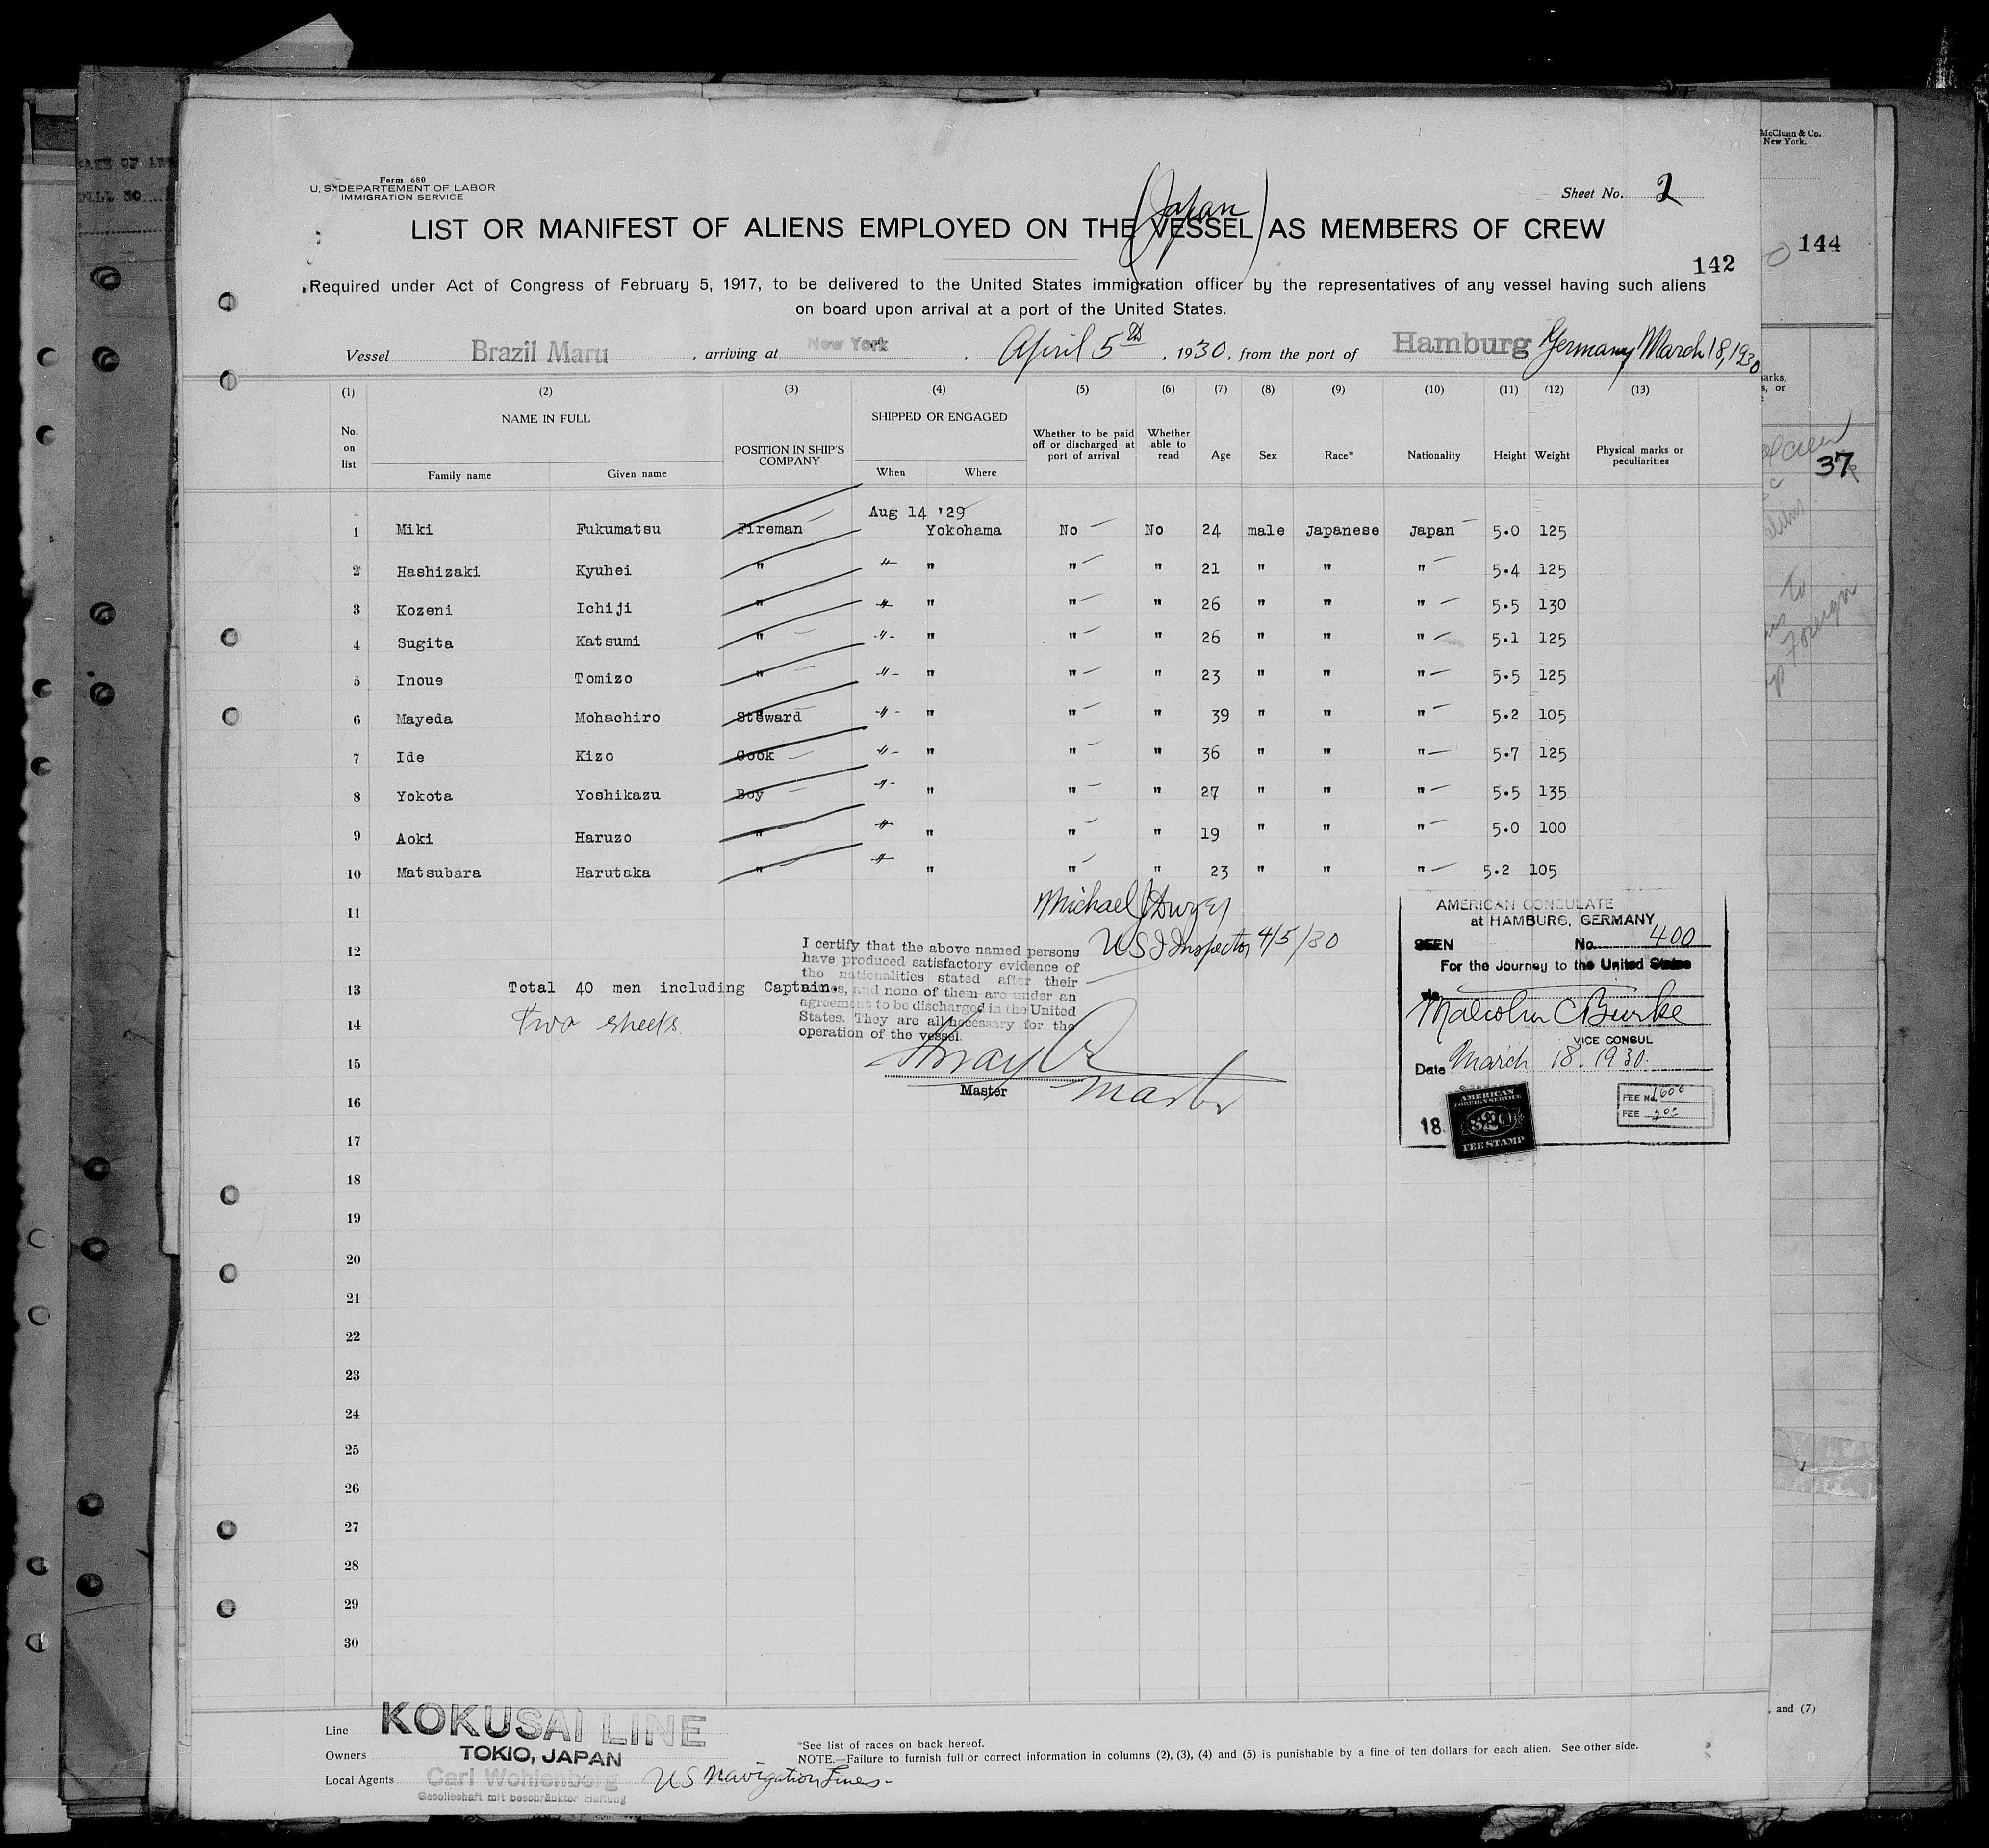 McClunn & Co.
New York.
Form 680
U. S. DEPARTEMENT OF LABOR
IMMIGRATION SERVICE
Sheet No. 2
(Japan)
LIST OR MANIFEST OF ALIENS EMPLOYED ON THE VESSEL AS MEMBERS OF CREW
142
144
Required under Act of Congress of February 5, 1917, to be delivered to the United States immigration officer by the representatives of any vessel having such aliens
on board upon arrival at a port of the United States.
Vessel Brazil Maru, arriving at New York, April 5th, 1930, from the port of Hamburg Germany March 18, 1930
(1) (2) (3) (4) (5) (6) (7) (8) (9) (10) (11) (12) (13)
No. on list NAME IN FULL Family name Given name POSITION IN SHIP'S COMPANY SHIPPED OR ENGAGED When Where Whether to be paid off or discharged at port of arrival Whether able to read Age Sex Race* Nationality Height Weight Physical marks or peculiarities
37
Aug 14 '29
1 Miki Fukumatsu Fireman Yokohama No No 24 male Japanese Japan 5.0 125
2 Hashizaki Kyuhei " " " " " 21 " " " 5.4 125
3 Kozeni Ichiji " " " " " 26 " " " 5.5 130
4 Sugita Katsumi " " " " " 26 " " " 5.1 125
5 Inoue Tomizo " " " " " 23 " " " 5.5 125
6 Mayeda Mohachiro Steward " " " " 39 " " " 5.2 105
7 Ide Kizo Cook " " " " 36 " " " 5.7 125
8 Yokota Yoshikazu Boy " " " " 27 " " " 5.5 135
9 Aoki Haruzo " " " " " 19 " " " 5.0 100
10 Matsubara Harutaka " " " " " 23 " " " 5.2 105
11
12
13 Total 40 men including Captain.
14 two sheets
15
16
17
18
19
20
21
22
23
24
25
26
27
28
29
30
Michael J Dwyer
US I Inspector 4/5/30
I certify that the above named persons
have produced satisfactory evidence of
the nationalities stated after their
names, and none of them are under an
agreement to be discharged in the United
States. They are all necessary for the
operation of the vessel.
Master
Master
AMERICAN CONSULATE
at HAMBURG, GERMANY
SEEN No. 400
For the Journey to the United States
Malcolm C Burke
VICE CONSUL
Date March 18. 1930.
18
AMERICAN
FOREIGN SERVICE
$2
FEE STAMP
FEE No. 1600
FEE 200
Line KOKUSAI LINE
Owners TOKIO, JAPAN
Local Agents Carl Wohlenberg US Navigation Lines
Gesellschaft mit beschränkter Haftung
*See list of races on back hereof.
NOTE.—Failure to furnish full or correct information in columns (2), (3), (4) and (5) is punishable by a fine of ten dollars for each alien. See other side.
, and (7)